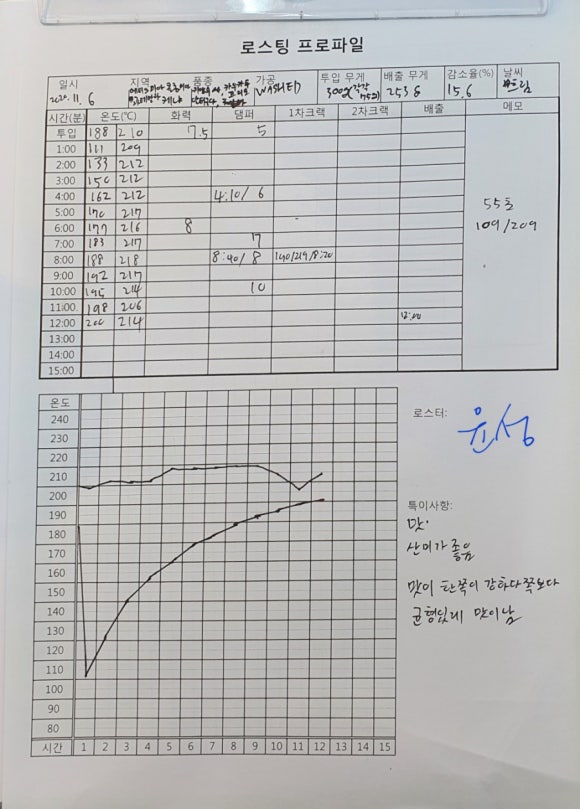 로스팅 프로파일
일시 지역 품종 가공 투입 무게 배출 무게 감소율(%) 날씨
2020. 11. 6 WASHED 300g 253g 15.6 흐림
시간(분) 온도(℃) 화력 댐퍼 1차크랙 2차크랙 배출 메모
투입 188 210 7.5 5
1:00 111 209
2:00 133 212
3:00 150 212
4:00 162 212 4:10/ 6
5:00 170 217
6:00 177 216 8
7:00 183 217 7
8:00 188 218 8:40/ 8 190/219/8:20
9:00 192 217
10:00 195 214 10
11:00 198 206
12:00 200 214 12:00
13:00
14:00
15:00
55초
109/209
온도
240
230
220
210
200
190
180
170
160
150
140
130
120
110
100
90
80
시간 1 2 3 4 5 6 7 8 9 10 11 12 13 14 15
로스터:
윤성
특이사항:
맛.
산미가 좋음
맛이 한쪽이 강하다쪽보다
균형있게 맛이남